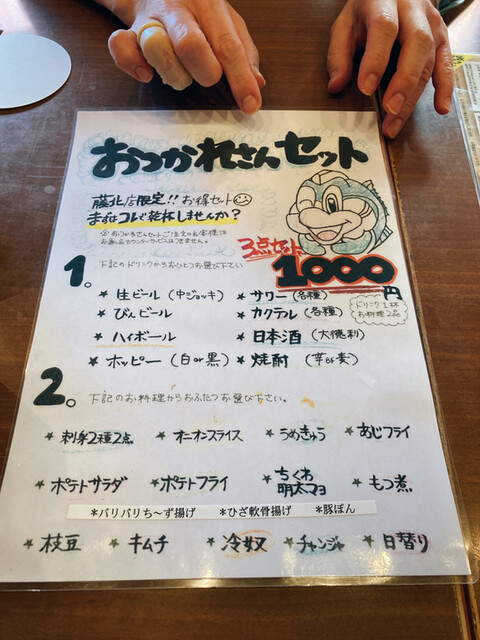 おつかれさんセット
藤北店限定!! お得セット
まずはコレで乾杯しませんか?
※おつかれさんセットご注文のお客様は
3点セット
1000円
ドリンク1杯
お料理2品
1。 下記のドリンクからおひとつお選び下さい
★ 生ビール (中ジョッキ) ★ サワー (各種)
★ びんビール ★ カクテル (各種)
★ ハイボール ★ 日本酒 (大徳利)
★ ホッピー (白or黒) ★ 焼酎 (芋or麦)
2。 下記のお料理からおふたつお選び下さい。
★ 刺身2種2点 ★ オニオンスライス ★ うめきゅう ★ あじフライ
★ ポテトサラダ ★ ポテトフライ ★ ちくわ明太マヨ ★ もつ煮
*パリパリち〜ず揚げ *ひざ軟骨揚げ *豚ぽん
★ 枝豆 ★ キムチ ★ 冷奴 ★ チャンジャ ★ 日替り